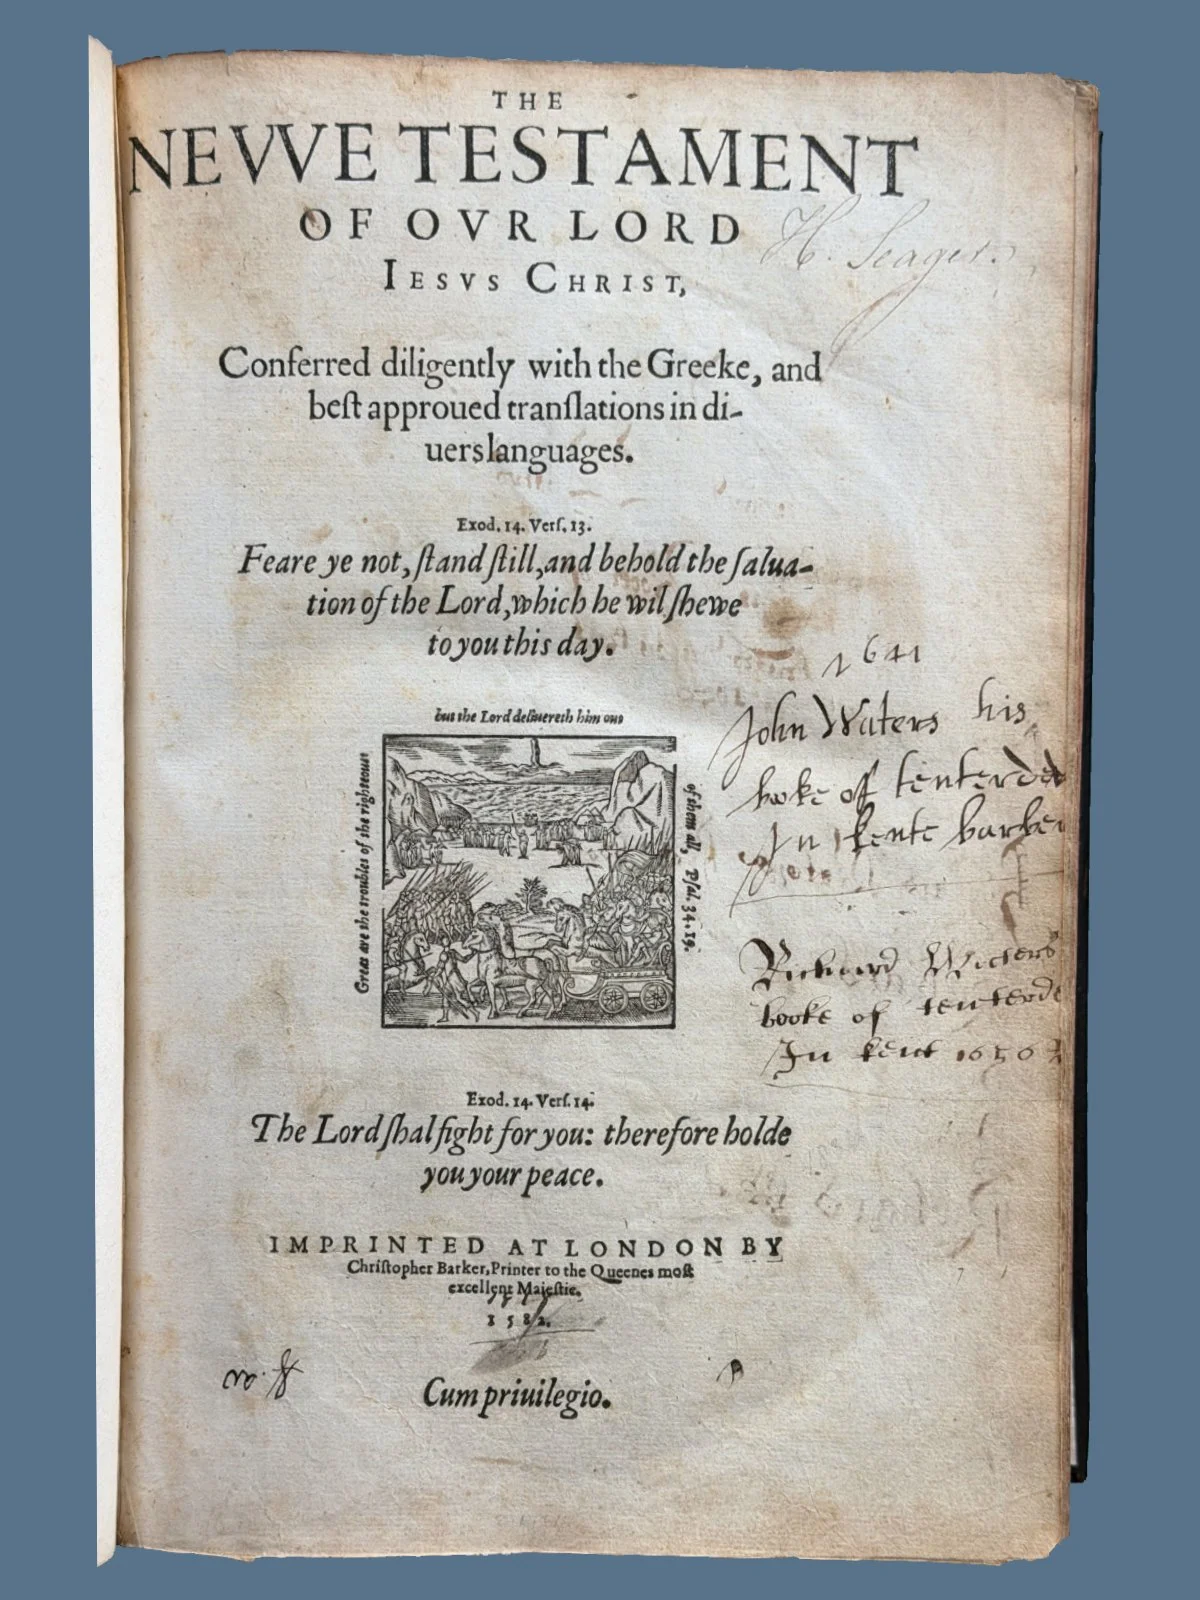 THE
NEVVE TESTAMENT
OF OVR LORD
IESVS CHRIST,
H. Seager.
Conferred diligently with the Greeke, and
beſt approued tranſlations in di-
uers languages.
Exod. 14. Verſ. 13.
Feare ye not, ſtand ſtill, and behold the ſalua-
tion of the Lord, which he wil ſhewe
to you this day.
1641
John Waters his
booke of tenterde
In kente barber
but the Lord deliuereth him out
Great are the troubles of the righteous
of them all, Pſal. 34. 19.
Richard Waters
booke of tenterde
In kent 1656
Exod. 14. Verſ. 14.
The Lord ſhal fight for you: therefore holde
you your peace.
IMPRINTED AT LONDON BY
Chriſtopher Barker, Printer to the Queenes moſt
excellent Maieſtie.
1582.
Cum priuilegio.